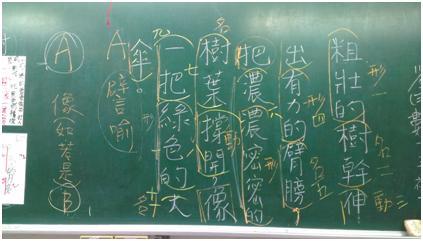 粗壯的樹幹伸
形一
名二
動三
出有力的臂膀，
形四
名五
把濃濃密密的
形
樹葉撐開，像
名
動
一把綠色的大
傘。
形
A 譬喻
A 像如若是 B